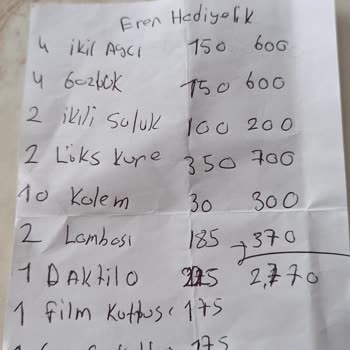 Eren Hediyelik
4 ikil Agcı 150 600
4 Gözbok 150 600
2 ikili Soluk 100 200
2 Lüks Küre 350 700
10 Kalem 30 300
2 Lambası 185 370
1 DAKtilo 225 2,770
1 film Kutbusı 175
1 175